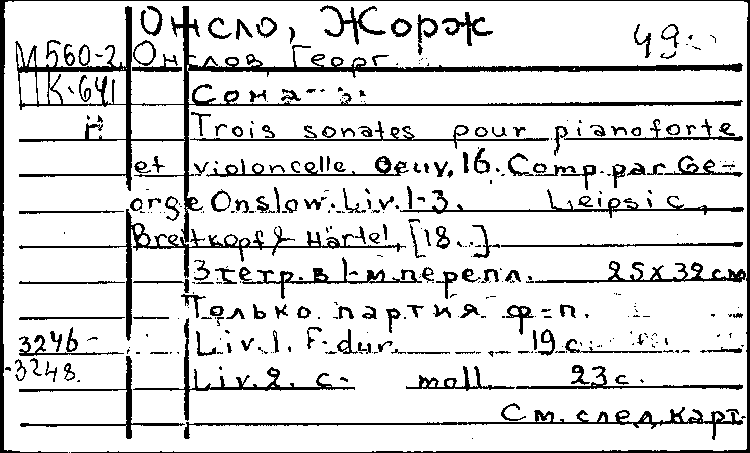 Онсло, Жорж
М560-2 Онслов, Георг 49
ПК-641 Сонаты
Н Trois sonates pour pianoforte
et violoncelle. Oeuv. 16. Comp. par Ge-
orge Onslow. Liv. 1-3. Leipsic,
Breitkopf & Härtel, [18..]
3 тетр. в 1-м перепл. 25x32 см
Только партия ф-п.
3246- Liv. 1. F-dur. 19 с.
-3248. Liv. 2. c- moll 23 с.
См. след. карт.